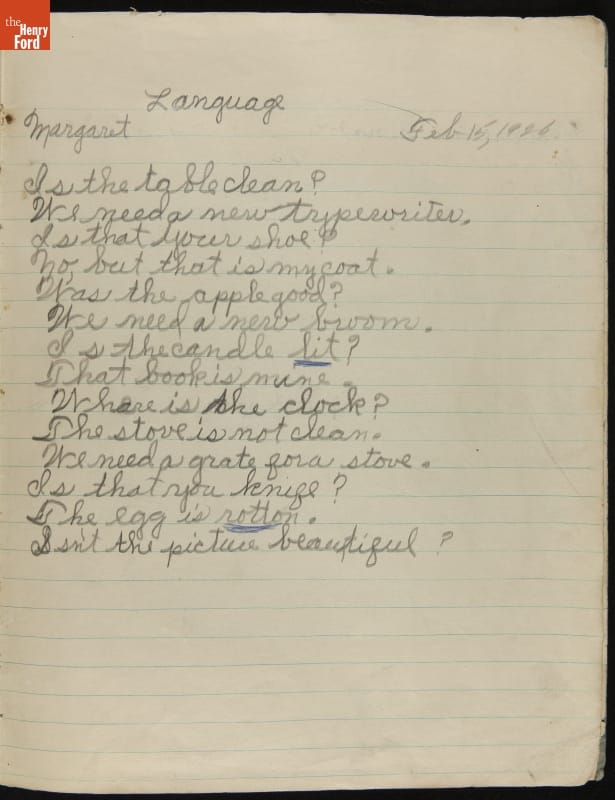 the
Henry
Ford
Language
Margaret Feb 15, 1926
Is the table clean?
We need a new trypewriter.
Is that your shoe?
No, but that is my coat.
Was the apple good?
We need a new broom.
Is the candle lit?
That book is mine.
Where is the clock?
The stove is not clean.
We need a grate for a stove.
Is that you knife?
The egg is rotton.
Isn't the picture beautiful?